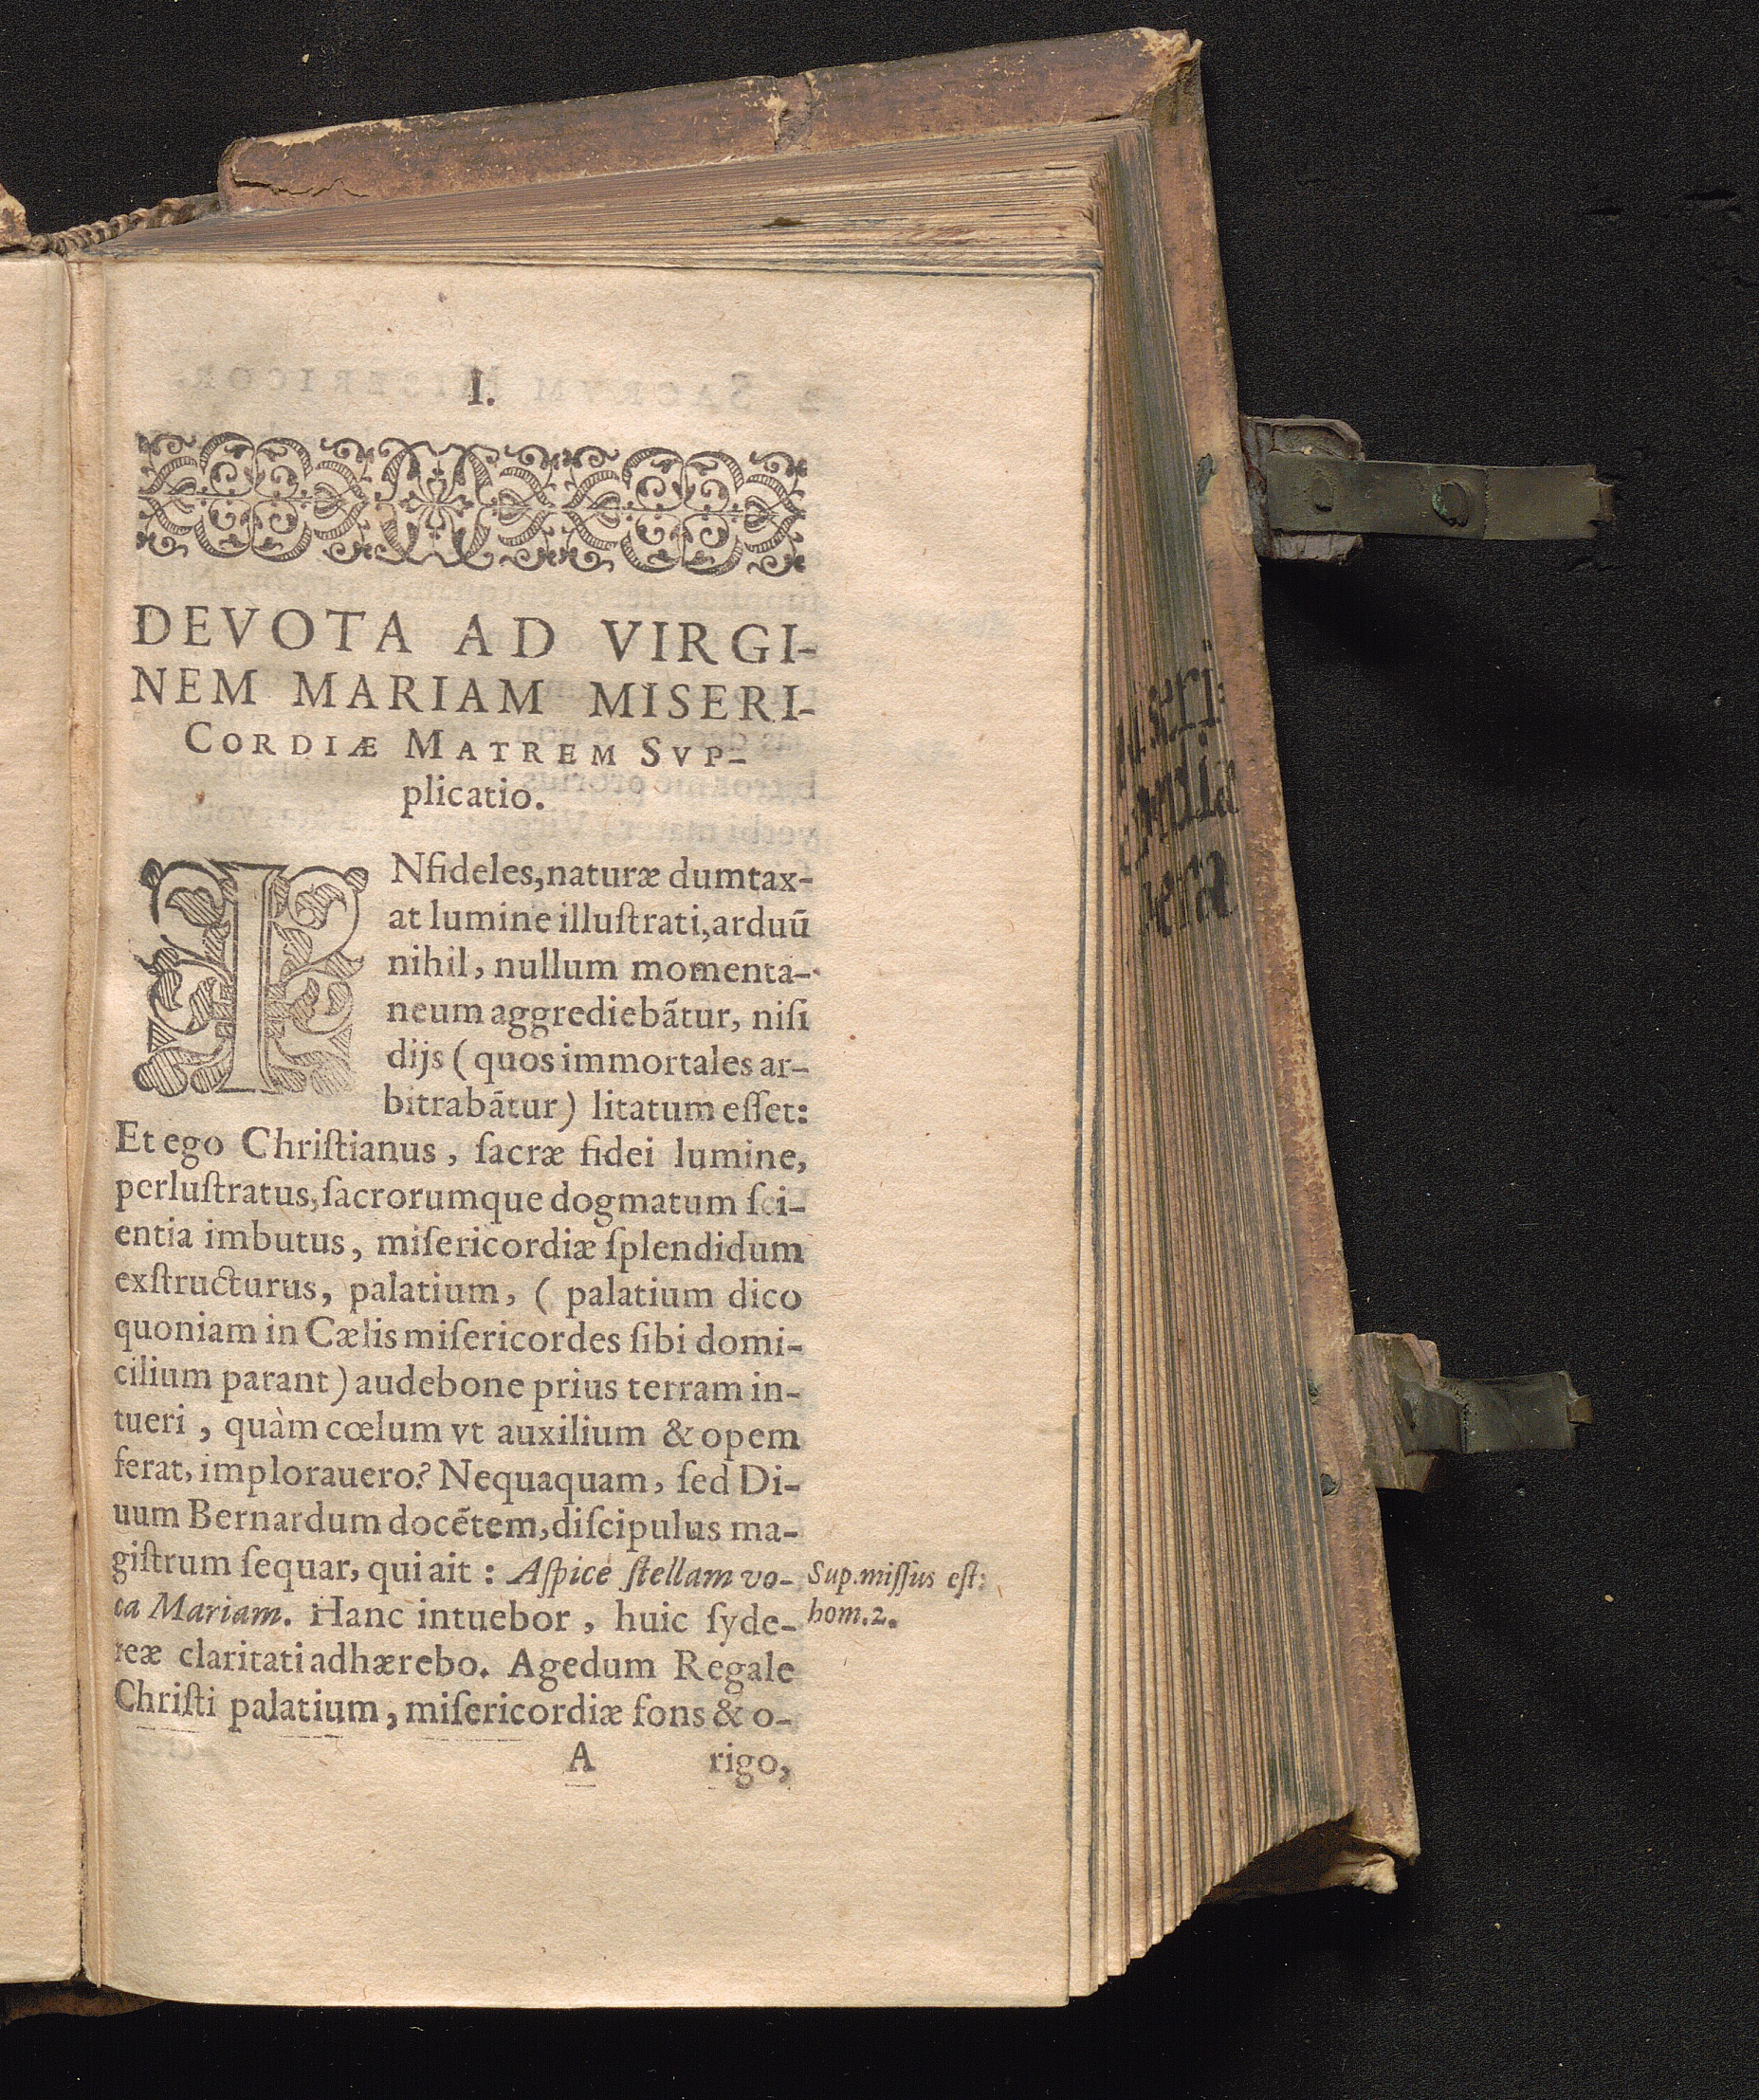 I.
DEVOTA AD VIRGI-
NEM MARIAM MISERI-
CORDIÆ MATREM SVP-
plicatio.
INfideles, naturæ dumtax-
at lumine illuſtrati, arduū
nihil, nullum momenta-
neum aggrediebātur, niſi
dijs (quos immortales ar-
bitrabātur) litatum eſſet:
Et ego Chriſtianus, ſacræ fidei lumine,
perluſtratus, ſacrorumque dogmatum ſci-
entia imbutus, miſericordiæ ſplendidum
exſtructurus, palatium, (palatium dico
quoniam in Cælis miſericordes ſibi domi-
cilium parant) audebone prius terram in-
tueri, quàm cœlum vt auxilium & opem
ferat, implorauero? Nequaquam, ſed Di-
uum Bernardum docētem, diſcipulus ma-
giſtrum ſequar, qui ait: Aſpice ſtellam vo-
ca Mariam. Hanc intuebor, huic ſyde-
reæ claritati adhærebo. Agedum Regale
Chriſti palatium, miſericordiæ fons & o-
A rigo,
Sup. miſſus eſt:
hom. 2.